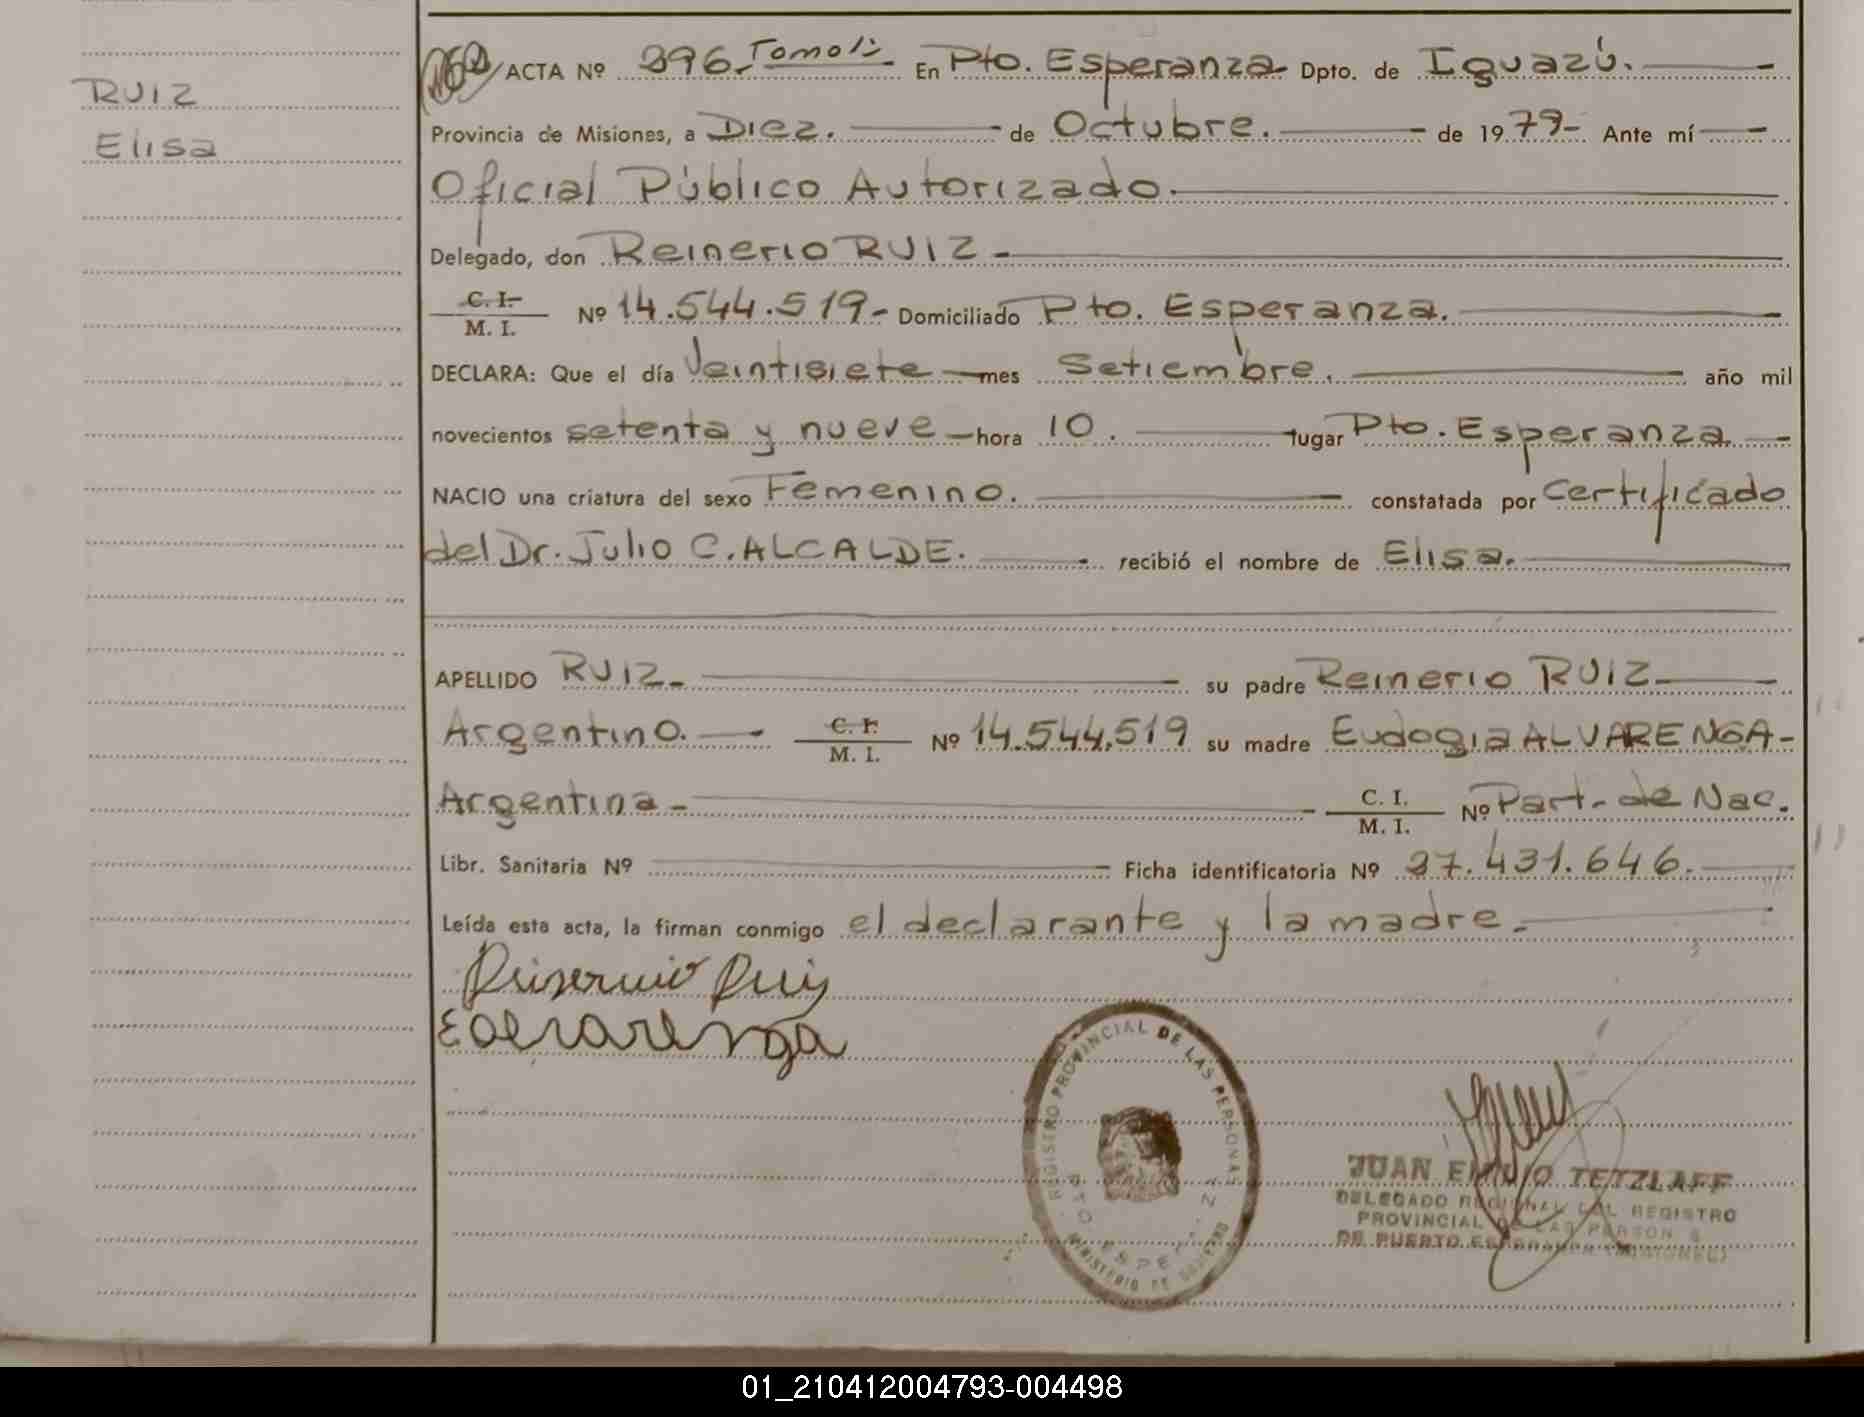 RUIZ
Elisa
ACTA Nº 396. Tomo 1: En Pto. Esperanza Dpto. de Iguazú.
Provincia de Misiones, a Diez. de Octubre. de 1979- Ante mí
Oficial Público Autorizado.
Delegado, don Reinerio RUIZ -
C. I.
M. I. Nº 14.544.519- Domiciliado Pto. Esperanza.
DECLARA: Que el día Veintisiete mes Setiembre. año mil
novecientos setenta y nueve hora 10. lugar Pto. Esperanza
NACIO una criatura del sexo Femenino. constatada por Certificado
del Dr. Julio C. ALCALDE. recibió el nombre de Elisa.
APELLIDO RUIZ- su padre Reinerio RUIZ-
Argentino. C. I.
M. I. Nº 14.544.519 su madre Eudogia ALVARENGA-
Argentina - C. I.
M. I. Nº Part. de Nac.
Libr. Sanitaria Nº Ficha identificatoria Nº 27.431.646.
Leída esta acta, la firman conmigo el declarante y la madre.
REGISTRO PROVINCIAL DE LAS PERSONAS
MINISTERIO DE GOBIERNO
JUAN EMILIO TETZLAFF
DELEGADO REGIONAL DEL REGISTRO
PROVINCIAL DE LAS PERSONAS
DE PUERTO ESPERANZA (MISIONES)
01_210412004793-004498